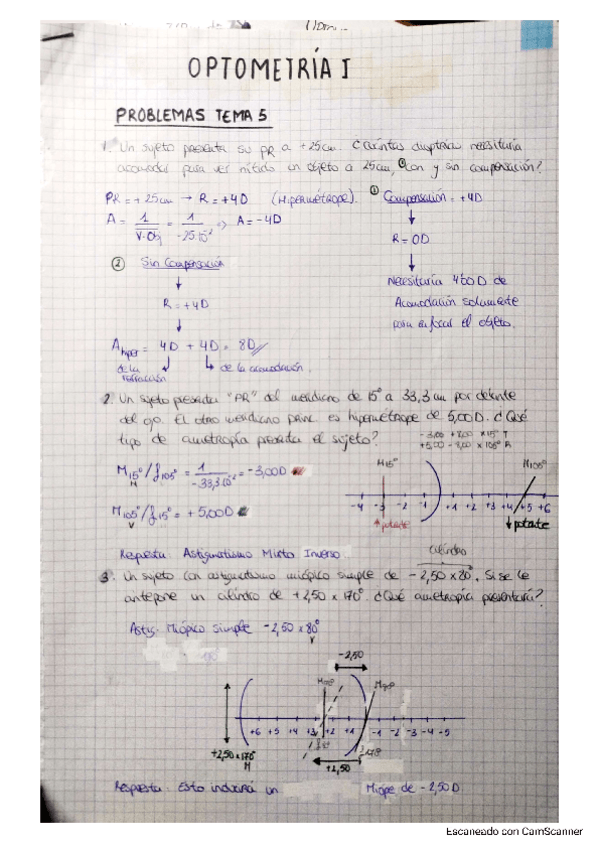 OPTOMETRÍA I
PROBLEMAS TEMA 5
1. Un sujeto presenta su PR a +25cm. ¿Cuántas dioptrías necesitaría
acomodar para ver nítido un objeto a 25cm, con y sin compensación?
PR = +25cm → R = +4D (Hipermétrope).
① Compensación = +4D
A = 1/V.Obj = 1/-25·10⁻² => A = -4D
R = 0D
② Sin Compensación
Necesitaría 4'00D de
Acomodación solamente
para enfocar el objeto.
R = +4D
A hiper = 4D + 4D = 8D
de la refracción
de la acomodación.
2. Un sujeto presenta "PR" del meridiano de 15° a 33,3 cm por delante
del ojo. El otro meridiano princ es hipermétrope de 5,00D. ¿Qué
tipo de ametropía presenta el sujeto?
-3,00 +8,00 x 15° T
+5,00 -8,00 x 105° R
M15°/f105° = 1/-33,3·10⁻² = -3,00D
H
M105°/f15° = +5,00D
V
M15°
M105°
-4 -3 -2 -1 +1 +2 +3 +4 +5 +6
↑potente
↓potente
Respuesta: Astigmatismo Mixto Inverso
cilindro
3. Un sujeto con astigmatismo miópico simple de -2,50 x 80°. Si se le
antepone un cilindro de +2,50 x 170°. ¿Qué ametropía presentará?
Astig. Miópico Simple -2,50 x 80°
V
-2,50
+6 +5 +4 +3 +2 +1 -1 -2 -3 -4 -5
+2,50 x 170°
H
+2,50
Respuesta: Esto inducirá un Miope de -2,50 D
Escaneado con CamScanner